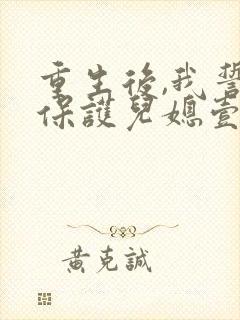 重生後,我誓
保護兒媳壹
黃克誠